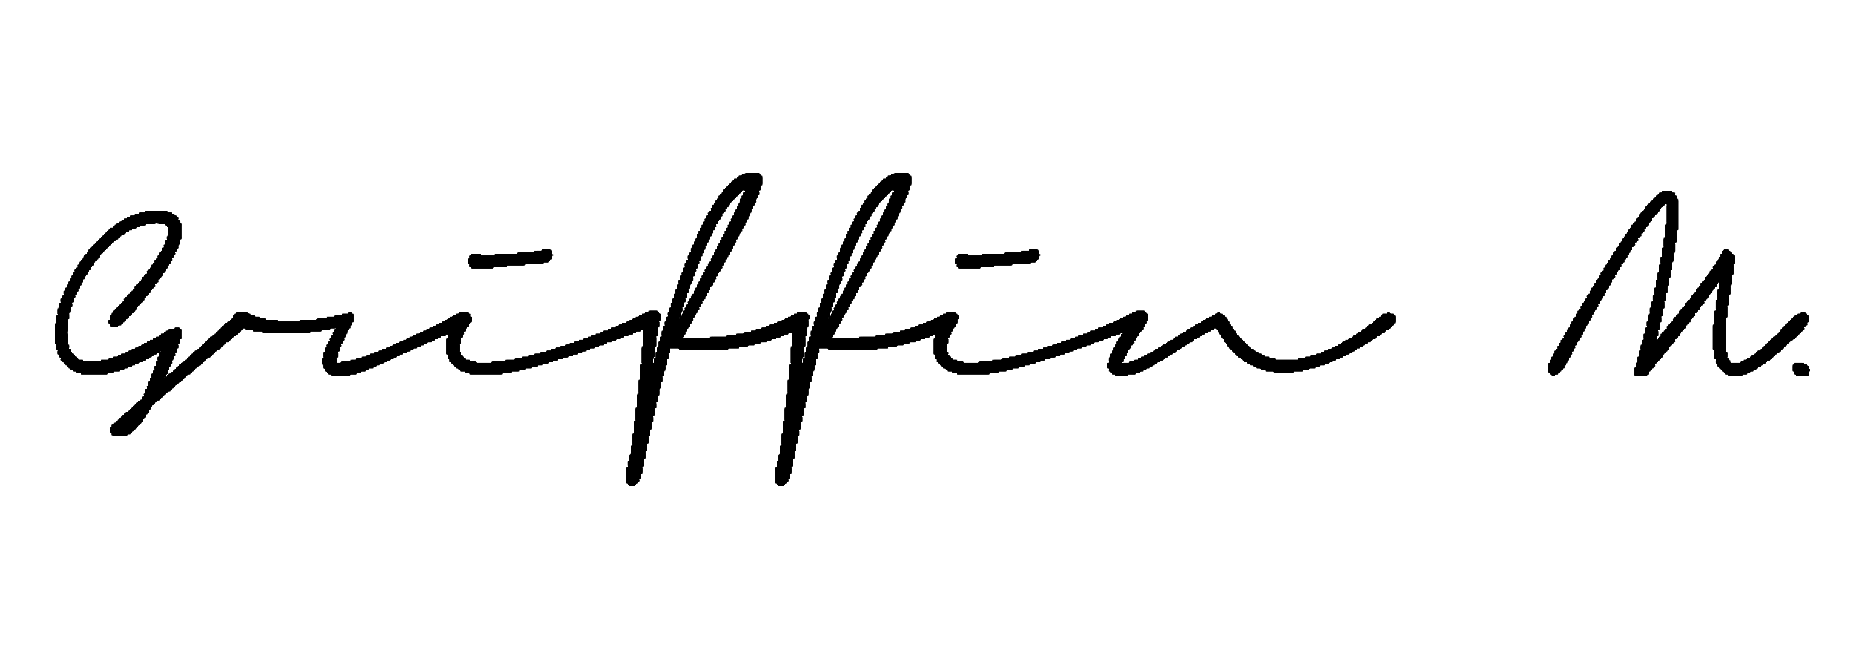 Griffin M.